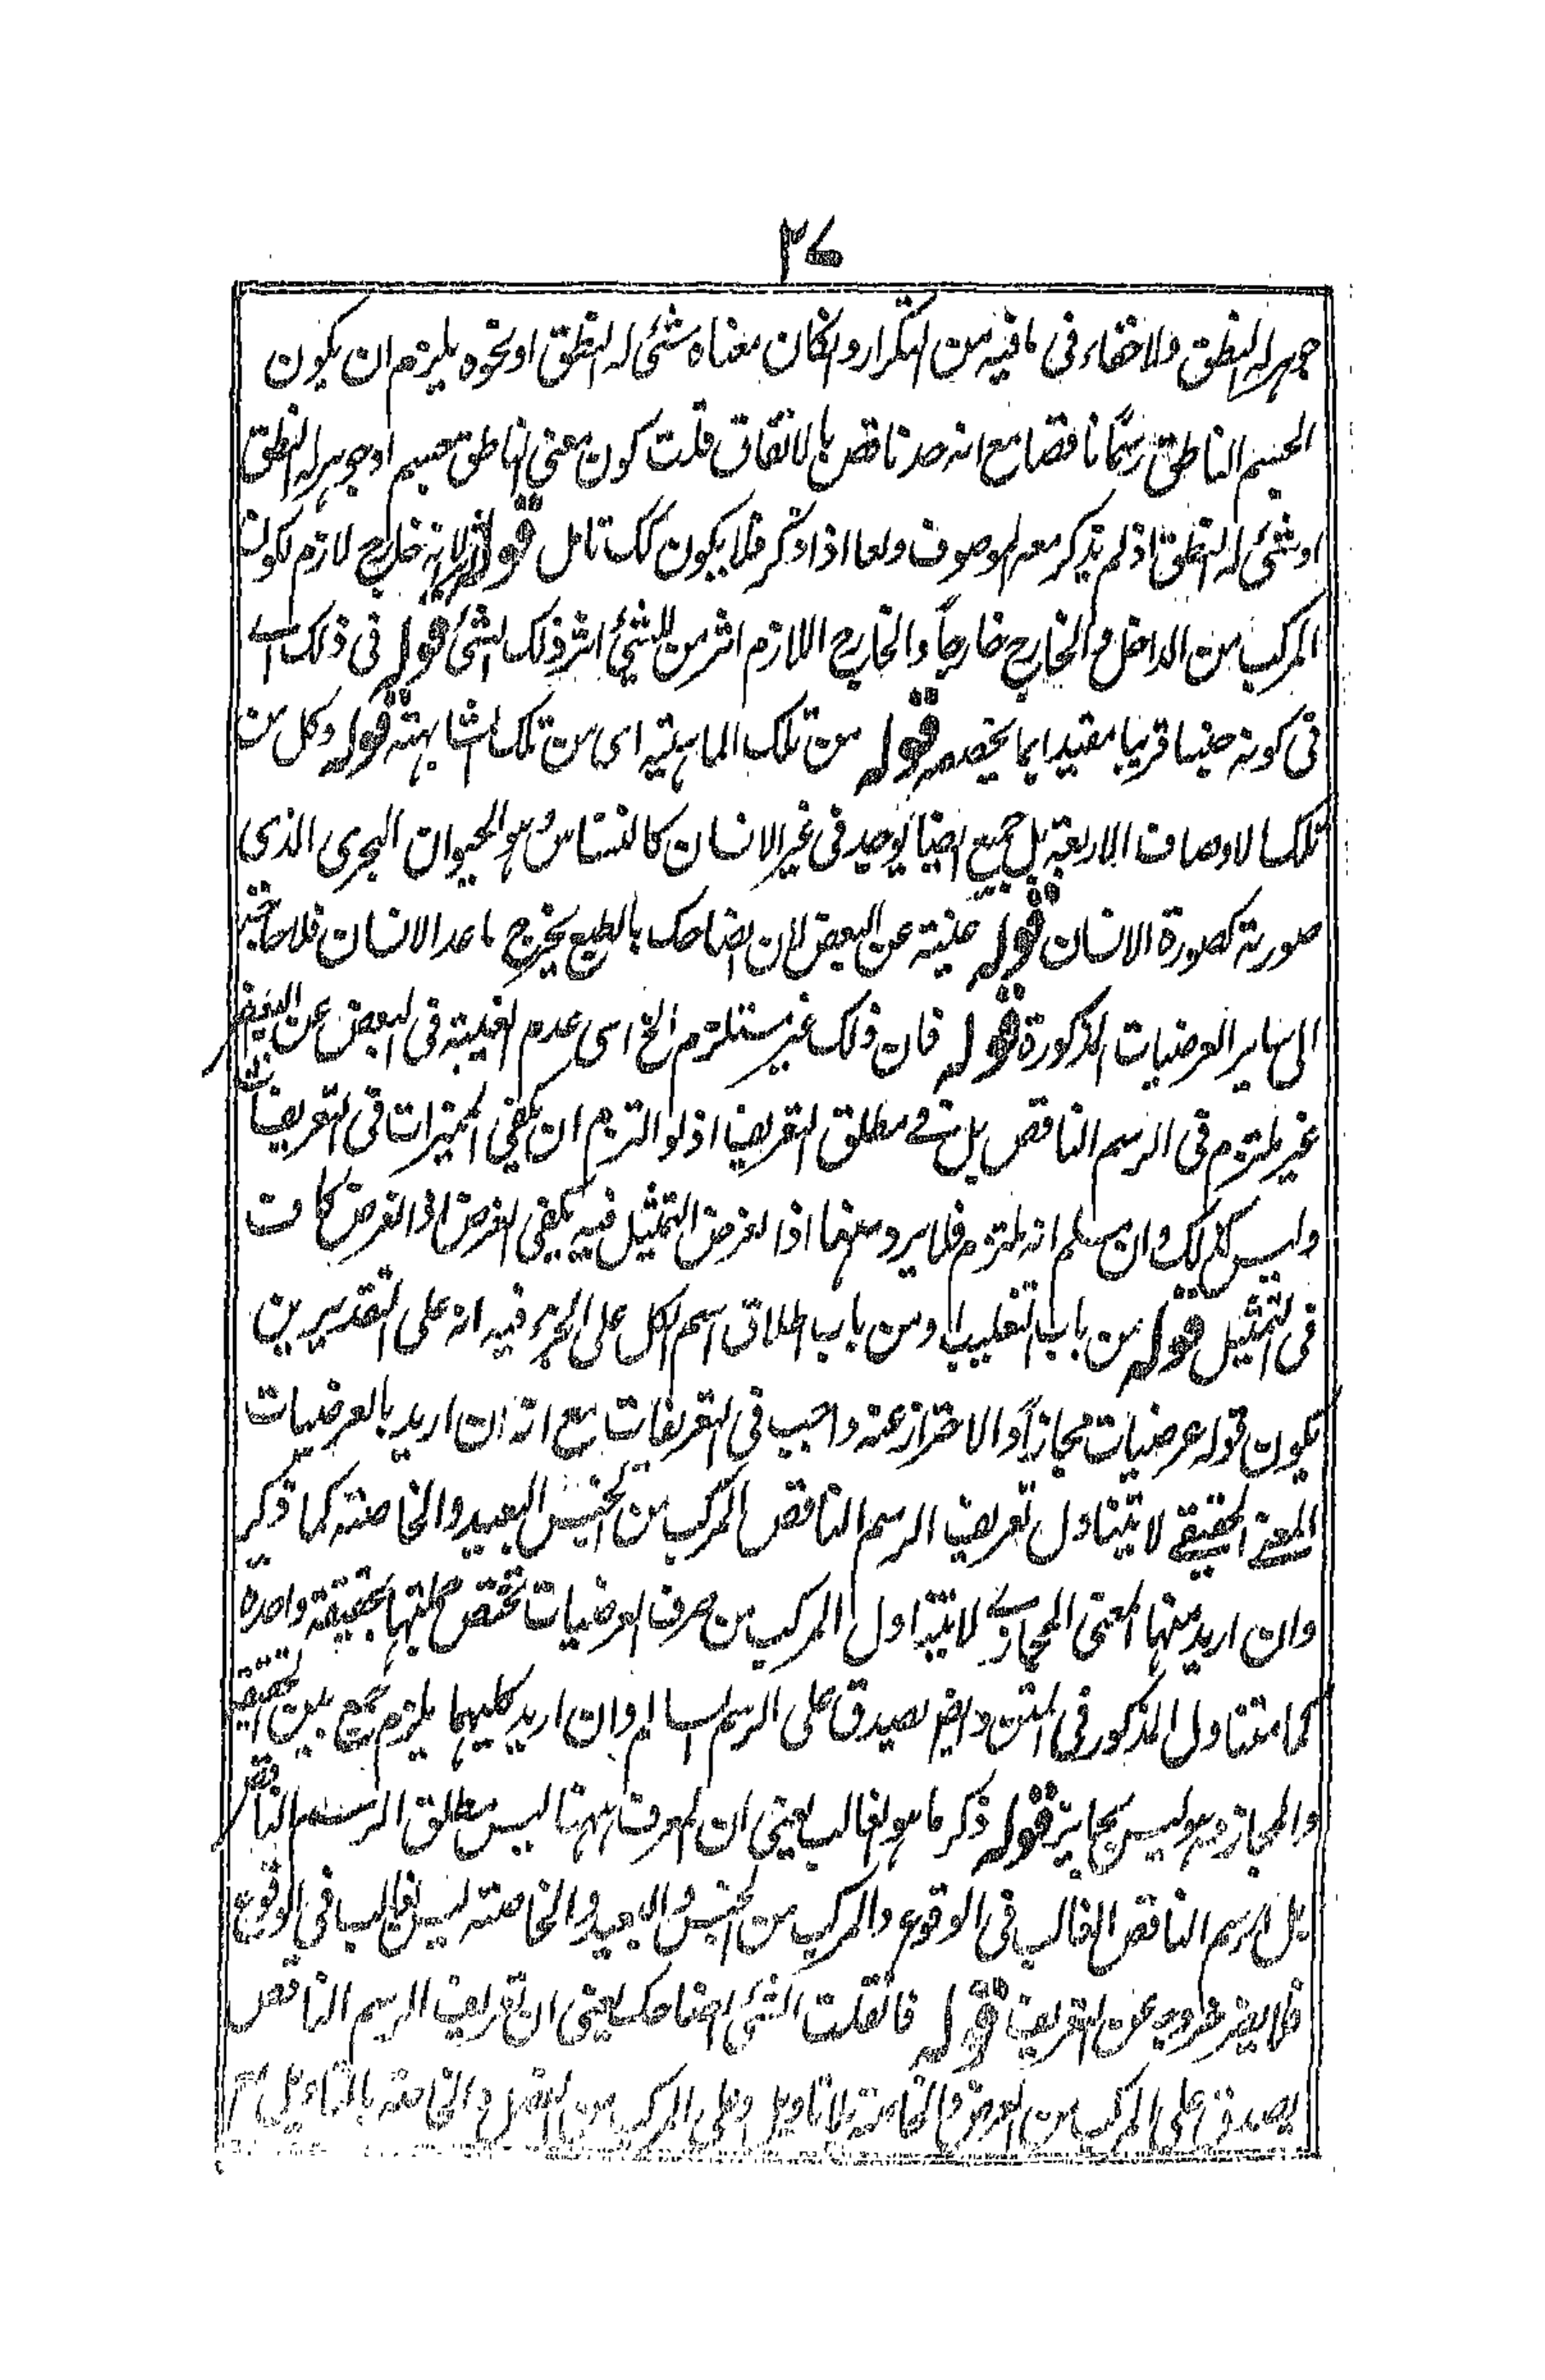 ٢٧
جوهر له النطق ولا خفاء فى ما فيه من التكرار وان كان معناه شئ له النطق او نحوه يلزم ان يكون
الجسم الناطق رسمًا ناقصا مع انه حد ناقص بالاتفاق قلت كون معنى الناطق جسم او جوهر له النطق
او شئ له النطق اذ لم يذكر معه الموصوف واما اذا ذكر فلا يكون كك تامل قوله لانه خارج لازم لكون
المركب من الداخل والخارج خارجاً والخارج اللازم اثر من للشئ اثر ذلك الشئ قوله فى ذلك اے
فى كونه جنسا قريبا مقيدا بما يخصه قوله من تلك الماهية اى من تلك المشابهة قوله وكل من
تلك الاوصاف الاربعة بل جميع ايضا يوجد فى غير الانسان كالنسناس وهو الحيوان البحرى الذى
صورته كصورة الانسان قوله غنية عن البعض لان الضاحك بالطبع يخرج ما عدا الانسان فلا حاجة
الى ساير العرضيات المذكورة قوله فان ذلك غير مستلزم الخ اى عدم الغنية فى البعض عن البعض
غير ملتزم فى الرسم الناقص بل فے مطلق التعريف اذ لو التزم ان يكفى المميزات فى التعريفات
وليس كذلك وان سلم انه ملتزم فلا يرد ههنا اذ الغرض التمثيل فيه يكفى الفرض اذ الفرض كاف
فى التمثيل قوله من باب التغليب او من باب اطلاق اسم الكل على الجزء فيه انه على التقديرين
يكون قوله عرضيات مجازاً والاحتراز عنه واجب فى التعريفات مع انه ان اريد بالعرضيات
المعنے الحقيقے لا يتناول تعريف الرسم الناقص المركب من الجنس البعيد والخاصة كما ذكر
وان اريد منها المعنى المجازے لا يتناول المركب من صرف العرضيات تختص جملتها بحقيقة واحدة
كما متناول المذكور فى المتن وايض يصدق على الرسم السالم وان اريد كليهما يلزم جمع بين الحقيقة
والمجاز وهو ليس بجايز قوله ذكر ما هو الغالب يعنى ان المعرف ههنا ليس مطلق الرسم الناقص
بل الرسم الناقص الغالب فى الوقوع والمركب من الجنس البعيد والخاصة ليس بغالب فى الوقوع
فلا يضر خروجه عن التعريف قوله فان قلت الشئ الضاحك يعنى ان تعريف الرسم الناقص
يصدق على المركب من العرض والخاصة بلا تاويل وعلى المركب من الفصل والخاصة بالتاويل